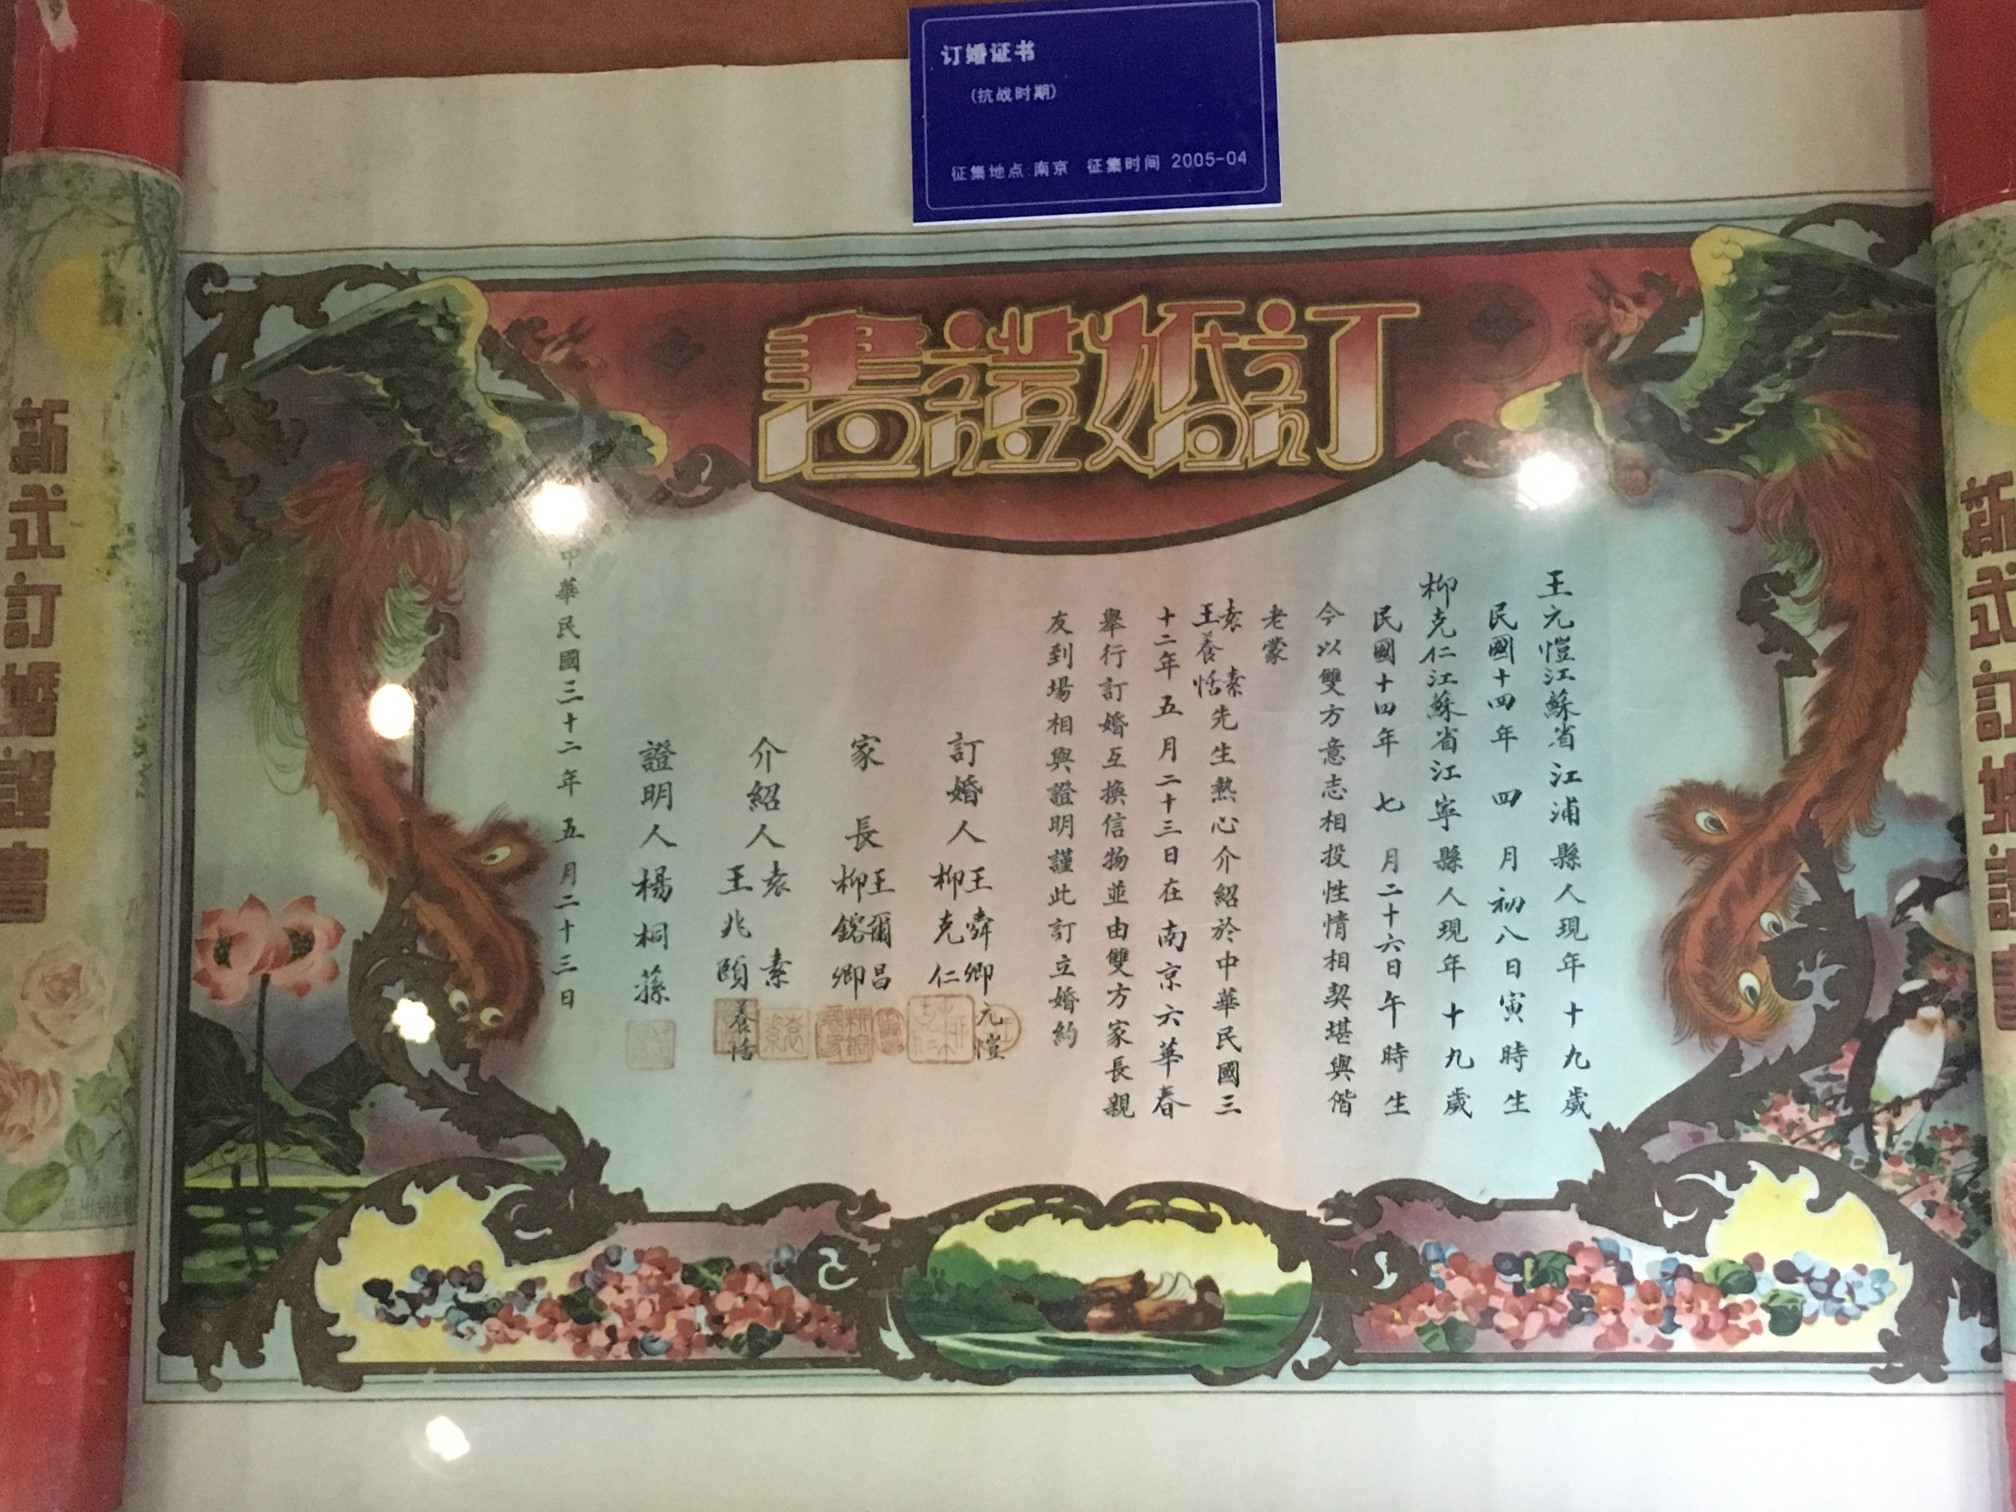 订婚证书
(抗战时期)
征集地点:南京 征集时间 2005-04
訂婚證書
王元愷江蘇省江浦縣人現年十九歲
民國十四年四月初八日寅時生
柳克仁江蘇省江寧縣人現年十九歲
民國十四年七月二十六日午時生
今以雙方意志相投性情相契堪與偕
老蒙
袁素
王養恬先生熱心介紹於中華民國三
十二年五月二十三日在南京六華春
舉行訂婚互換信物並由雙方家長親
友到場相與證明謹此訂立婚約
訂婚人 王舜卿元愷
柳克仁
家長 王爾昌
柳鎔卿
介紹人 袁素
王兆頤養恬
證明人 楊桐蓀
中華民國三十二年五月二十三日
新式訂婚證書
新式訂婚證書